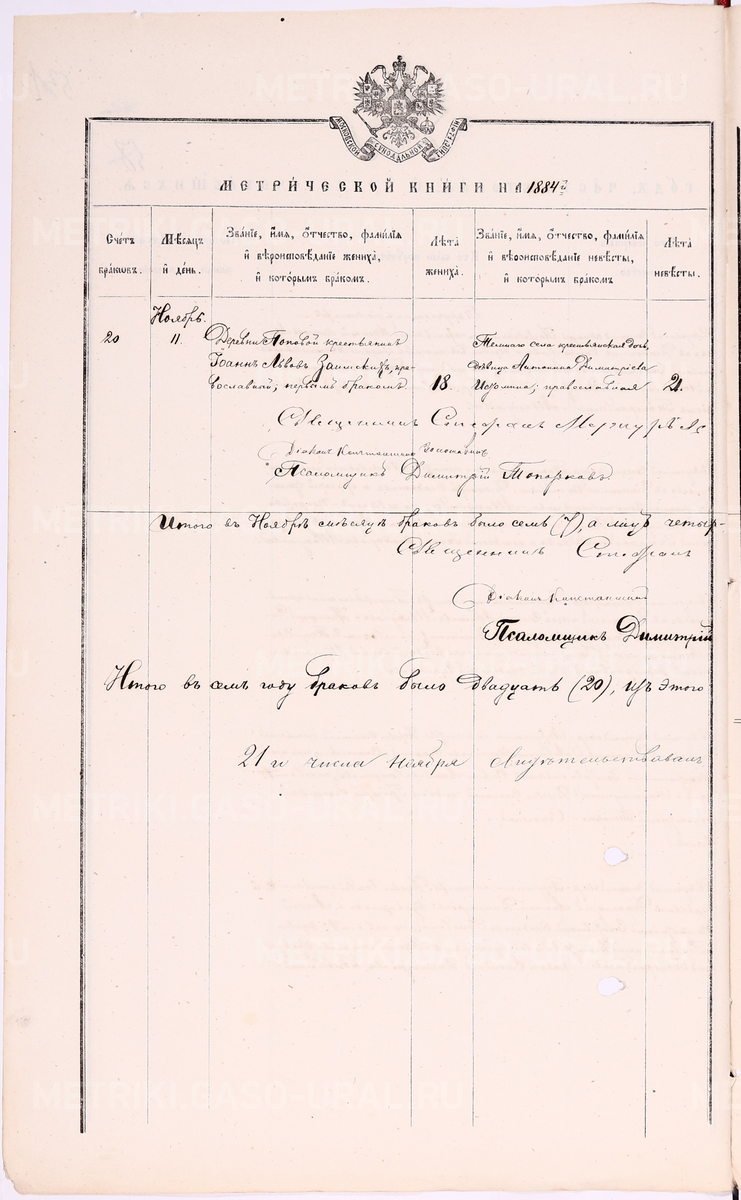 МЕТРИ́ЧЕСКОЙ КНИ́ГИ НА 1884 й
Сче́тъ бра́ковъ.
Мѣ́сяцъ и де́нь.
Зва́нїе, и́мя, о́тчество, фами́лїя и вѣроисповѣ́данїе жениха́, и кото́рымъ бра́комъ.
Лѣ́та жениха́.
Зва́нїе, и́мя, о́тчество, фами́лїя и вѣроисповѣ́данїе невѣ́сты, и кото́рымъ бра́комъ
Лѣ́та невѣ́сты.
Ноябрь.
20 11. Деревни Поповой крестьянинъ
Іоаннъ Львовъ Заимскихъ, пра-
вославный; первымъ бракомъ 18.
села крестьянская дочь,
дѣвица Антонина Димитріева
православная 21.
Священникъ Стефанъ
Діаконъ Константинъ
Псаломщикъ Димитрій Топорковъ.
Итого въ Ноябрѣ мѣсяцѣ браковъ было семь (7), а лицъ четыр-
Священникъ Стефанъ
Діаконъ Константинъ
Псаломщикъ Димитрій
Итого въ семъ году браковъ было двадцать (20), изъ этого
21 го числа Ноября Свидѣтельствовалъ
METRIKI.GASO-URAL.RU